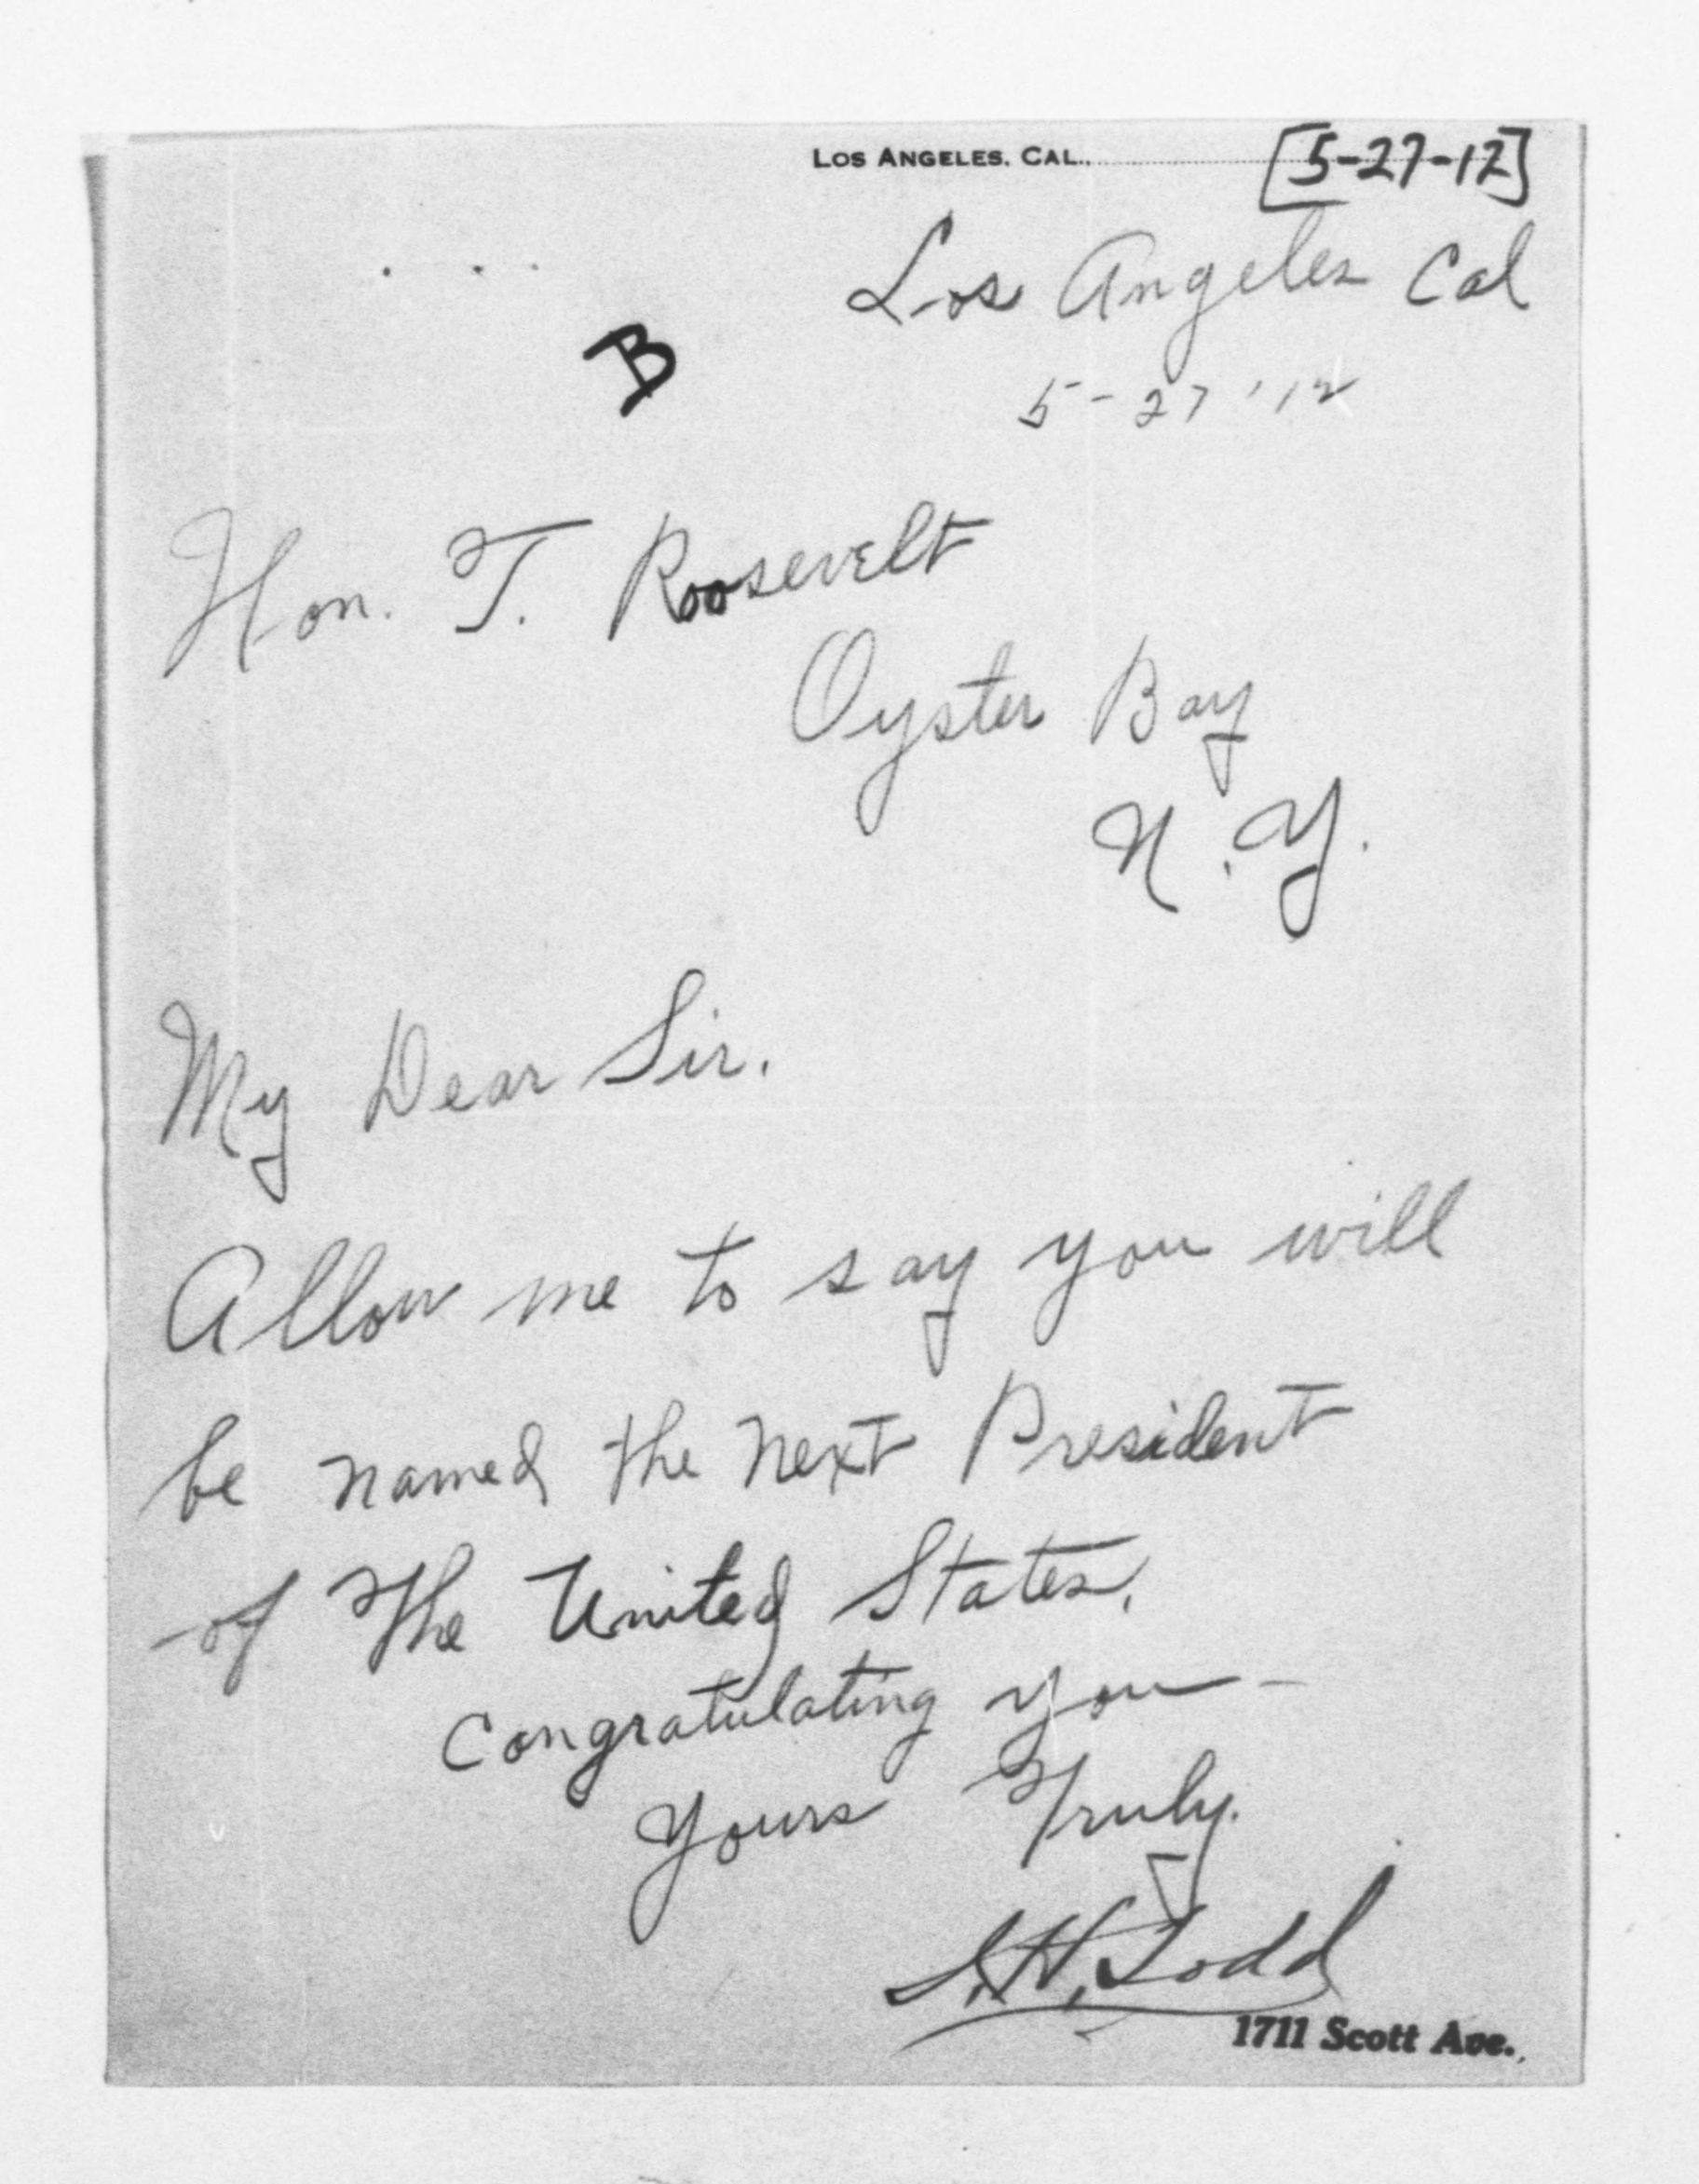 LOS ANGELES, CAL.,
[5-27-12]
Los Angeles Cal
B
5-27 '12
Hon. T. Roosevelt
Oyster Bay
N.Y.
My Dear Sir.
Allow me to say you will
be named the next President
of the United States.
Congratulating you -
Yours Truly.
S.H. Todd
1711 Scott Ave.,